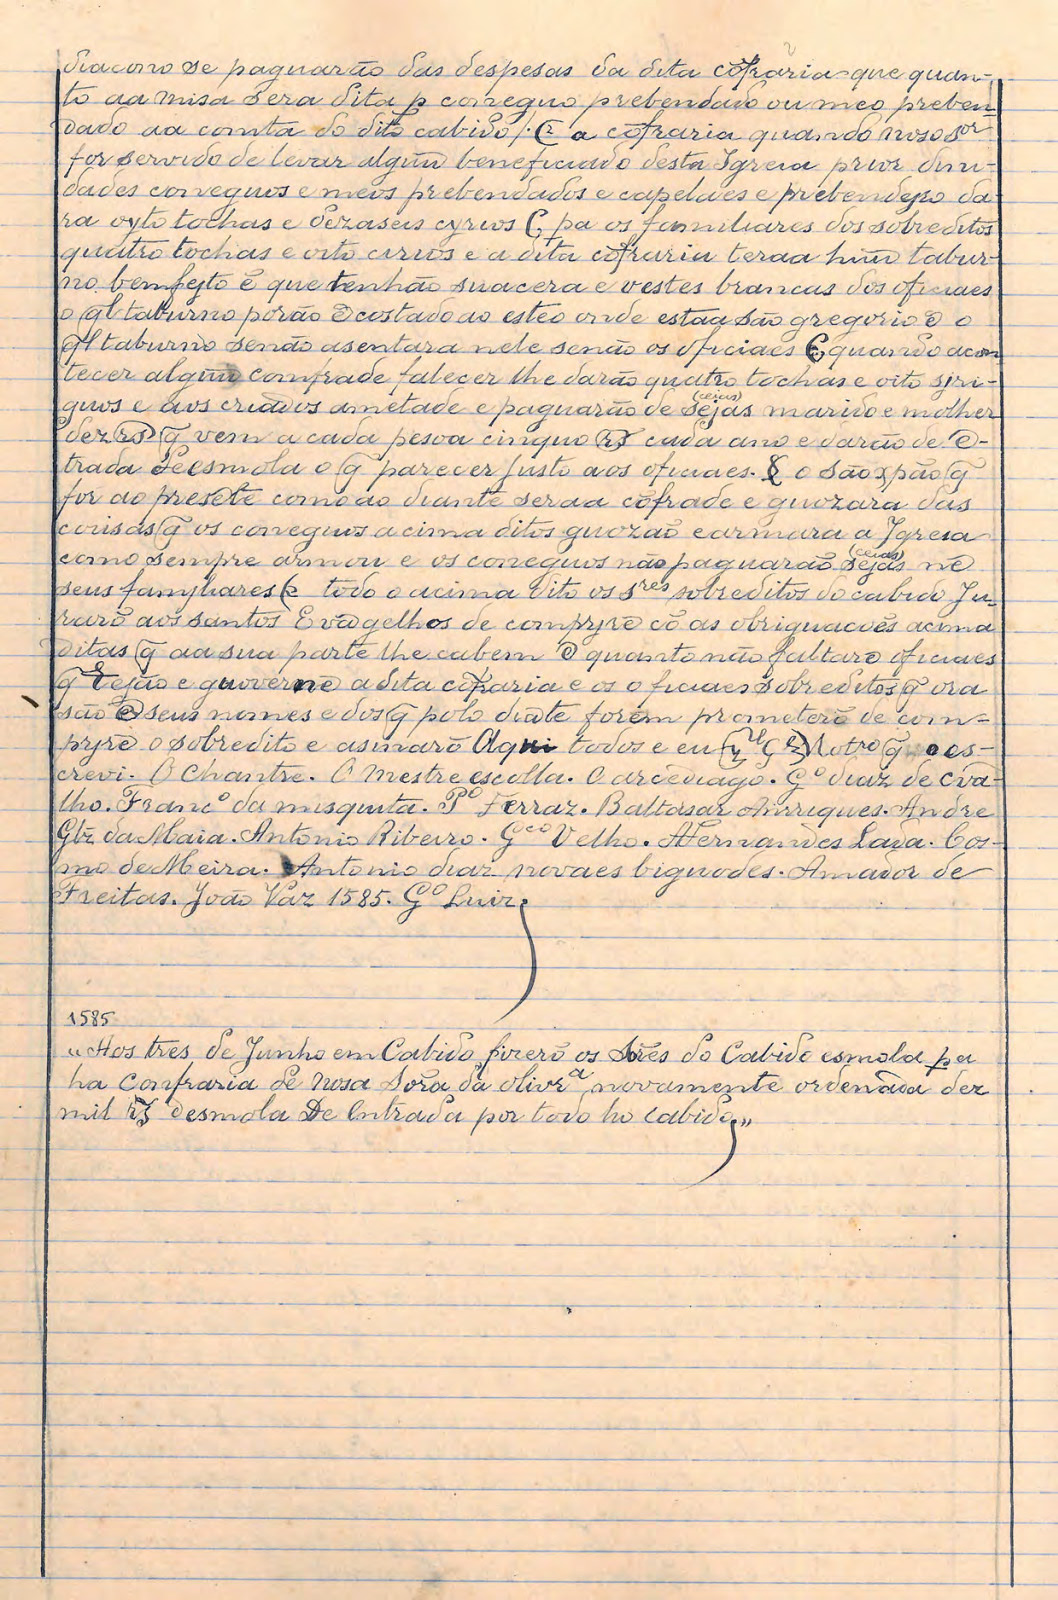 diacono se paguarão das despesas da dita cõfraria que quan-
to aa misa sera dita p coneguo prebendado ou meo preben-
dado aa comta do dito cabido /. E a cõfraria quando noso sor
for servido de levar algũ beneficiado desta Igreia prior dini-
dades coneguos e meos prebendados e capelães e prebendeyro da-
ra oyto tochas e dezaseis cyrios E pa os familiares dos sobreditos
quatro tochas e oito cirios e a dita cõfraria teraa hũu tabur-
no bemfeyto ẽ que tenhão sua cera e vestes brancas dos oficiaes
o q̃l taburno porão ẽcostado ao esteo onde estaa são gregorio e o
q̃l taburno senão asentara nele senão os oficiaes E quando acon
tecer algũu comfrade falecer lhe darão quatro tochas e oito syri-
guos e aos criados ametade e paguarão de sejas (ceias) marido e molher
dez rs q̃ vem a cada pesoa cinquo rs cada ano e darão de ẽ-
trada de esmola o q̃ parecer justo aos oficiaes. E o são xpão q̃
for ao presẽte como ao diante seraa cõfrade e guozara das
cousas q̃ os coneguos acima ditos guozão e armara a Igreia
como sempre armou e os coneguos não paguarão sejas (ceias) nẽ
seus famyliares E todo o acima dito os sres sobreditos do cabido Ju-
rarõ aos santos Evãgelhos de compryrẽ cõ as obriguacoẽs acima
ditas q̃ aa sua parte lhe cabem e quanto não faltarẽ oficiaes
q̃ rejão e guovernẽ a dita cõfraria e os oficiaes sobreditos q̃ ora
são e seus nomes e dos q̃ polo diãte forem prometerõ de com-
pryrẽ o sobredito e asinarõ Aqui todos e eu Notro q̃ o es-
crevi. O Chantre. O mestre escolla. O arcediago. Gº diaz de Cva-
lho. Francº da misquita. Pº Ferraz. Baltasar Anrriques. Andre
Glz da Maia. Antonio Ribeiro. Gco Velho. Hernandes Lada. Cos-
mo de Meira. Antonio diaz novaes biguodes. Amador de
Freitas. João Vaz 1585. Gº Luiz.
1585
"Aos tres de Junho em Cabido fizerõ os Sõres do Cabido esmola pa
ha Confraria de Nosa Sõra da olivrª novamente ordenada dez
mil rs desmola De Entrada por todo ho cabido."